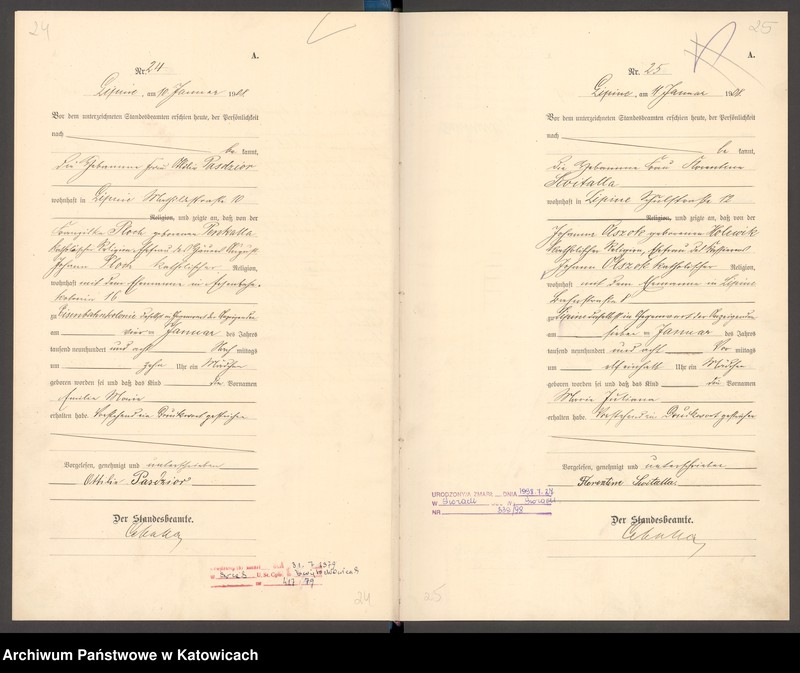 24
A.
Nr. 24
Lipine, am 10 Januar 1908.
Vor dem unterzeichneten Standesbeamten erschien heute, der Persönlichkeit
nach
be kannt,
die Hebamme Frau Ottilie Pasdzior
wohnhaft in Lipine 10
Religion, und zeigte an, daß von der
Ploch geborene
katholischer Religion, Ehefrau des August
Johann Ploch katholischer Religion,
wohnhaft mit dem Ehemanne in Eisenbahn-
kolonie 16
zu Eisenbahnkolonie daselbst in Gegenwart der Anzeigenden
am Januar des Jahres
tausend neunhundert und acht Nach mittags
um zehn Uhr ein Mädchen
geboren worden sei und daß das Kind die Vornamen
Emilie Marie
erhalten habe. Vorstehend ein Druckwort gestrichen
Vorgelesen, genehmigt und unterschrieben
Ottilie Pasdzior
Der Standesbeamte.
31. 7. 1979
417/79
24
25
A.
Nr. 25
Lipine, am 11 Januar 1908.
Vor dem unterzeichneten Standesbeamten erschien heute, der Persönlichkeit
nach
be kannt,
die Hebamme Frau Florentine
Switalla
wohnhaft in Lipine Schulstraße 12
Religion, und zeigte an, daß von der
Johanna Olszok geborenen Holewik
katholischer Religion, Ehefrau des
Johann Olszok katholischer Religion,
wohnhaft mit dem Ehemanne in Lipine
8
zu Lipine daselbst in Gegenwart der Anzeigenden
am sieben Januar des Jahres
tausend neunhundert und acht Vor mittags
um elf einhalb Uhr ein Mädchen
geboren worden sei und daß das Kind die Vornamen
Marie Juliana
erhalten habe. Vorstehend ein Druckwort gestrichen
Vorgelesen, genehmigt und unterschrieben
Florentine Switalla.
Der Standesbeamte.
URODZONY/A ZMARŁ DNIA
W
NR 538/98
25
Archiwum Państwowe w Katowicach